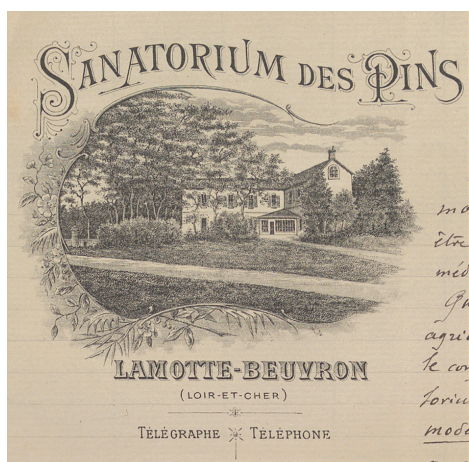 SANATORIUM DES PINS
LAMOTTE-BEUVRON
(LOIR-ET-CHER)
TÉLÉGRAPHE TÉLÉPHONE
être
méd
agric
le con
mode